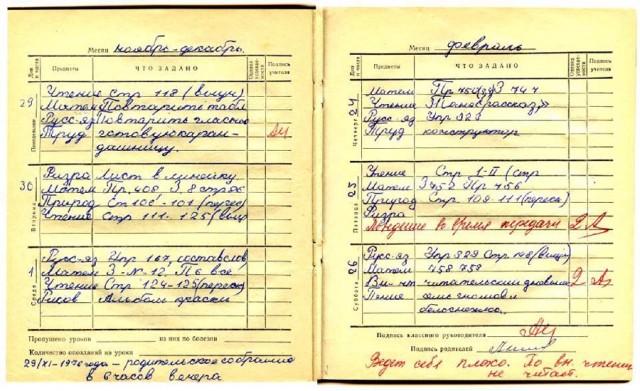 Месяц ноябрь-декабрь.
Дни и числа Предметы ЧТО ЗАДАНО Оценка успеваемости Подпись учителя
29 Понедельник
Чтение Стр 118 (выуч)
Матем Повтарить табл
Русс-яз Повтарить гласные
Труд готовую каран-
дашницу.
30 Вторник
Физра Лист в линейку
Матем Пр. 408 З. 8 стр 86
Природ Ст 100-101 (перес)
Чтение Стр 111-125 (выр
1 Среда
Русс-яз Упр 167, состав слов
Матем З-N-12. П 6 все
Чтение Стр 124-125 (перес)
Рисов Альбом краски
Пропущено уроков — из них по болезни
Количество опозданий на уроки
29/XI-1976 года - родительское собрание
в 6 часов вечера
Месяц февраль
Дни и числа Предметы ЧТО ЗАДАНО Оценка успеваемости Подпись учителя
24 Четверг
Матем Пр 450 З 747
Чтение рассказ,"
Русс-яз Упр 323
Труд конструктор
25 Пятница
Чтение Стр 1-II (стр
Матем З 752 Пр 756
Природ Стр 108-111 (перес)
Физра
Поведение во время передачи 2
26 Суббота
Русс-яз Упр 329 Стр 146 (Выуч)
Матем 758 759
Вн-чт читательский дневник 2
Пение гномов и
белоснежка.
Подпись классного руководителя
Подпись родителей
Ведет себя плохо. По вн. чтению
не читает.